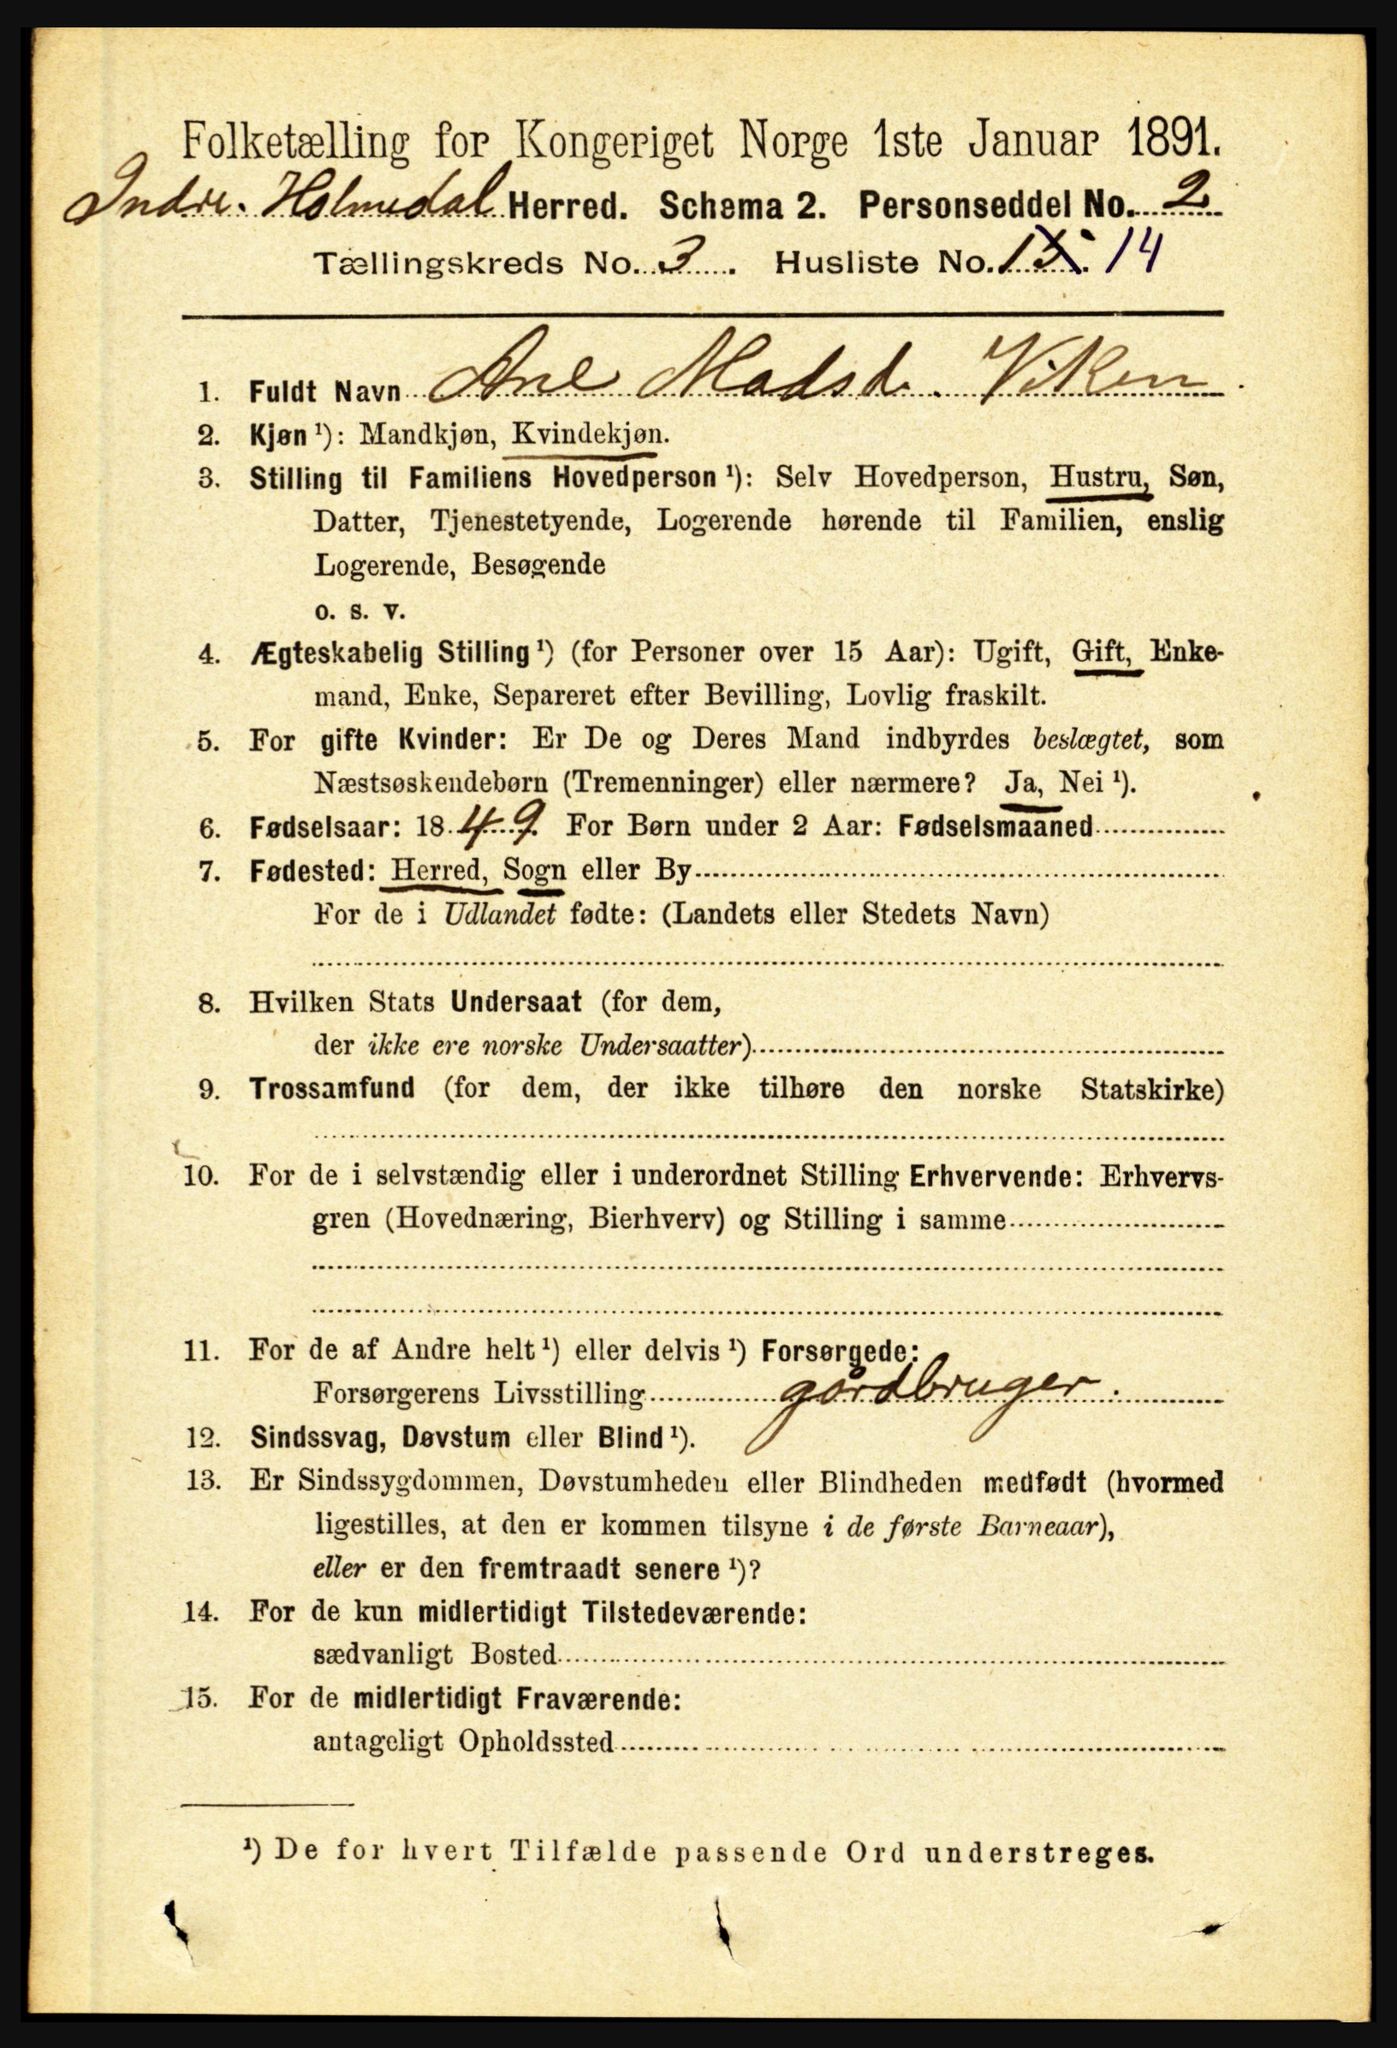 Folketælling for Kongeriget Norge 1ste Januar 1891.
Indre Holmedal Herred. Schema 2. Personseddel No. 2
Tællingskreds No. 3. Husliste No. 15. 14
1. Fuldt Navn Ane Madsd. Viken.
2. Kjøn ¹): Mandkjøn, Kvindekjøn.
3. Stilling til Familiens Hovedperson ¹): Selv Hovedperson, Hustru, Søn,
Datter, Tjenestetyende, Logerende hørende til Familien, enslig
Logerende, Besøgende
o. s. v.
4. Ægteskabelig Stilling ¹) (for Personer over 15 Aar): Ugift, Gift, Enke-
mand, Enke, Separeret efter Bevilling, Lovlig fraskilt.
5. For gifte Kvinder: Er De og Deres Mand indbyrdes beslægtet, som
Næstsøskendebørn (Tremenninger) eller nærmere? Ja, Nei ¹).
6. Fødselsaar: 1849. For Børn under 2 Aar: Fødselsmaaned
7. Fødested: Herred, Sogn eller By
For de i Udlandet fødte: (Landets eller Stedets Navn)
8. Hvilken Stats Undersaat (for dem,
der ikke ere norske Undersaatter)
9. Trossamfund (for dem, der ikke tilhøre den norske Statskirke)
10. For de i selvstændig eller i underordnet Stilling Erhvervende: Erhvervs-
gren (Hovednæring, Bierhverv) og Stilling i samme
11. For de af Andre helt ¹) eller delvis ¹) Forsørgede:
Forsørgerens Livsstilling gårdbruger.
12. Sindssvag, Døvstum eller Blind ¹).
13. Er Sindssygdommen, Døvstumheden eller Blindheden medfødt (hvormed
ligestilles, at den er kommen tilsyne i de første Barneaar),
eller er den fremtraadt senere ¹)?
14. For de kun midlertidigt Tilstedeværende:
sædvanligt Bosted
15. For de midlertidigt Fraværende:
antageligt Opholdssted
¹) De for hvert Tilfælde passende Ord understreges.